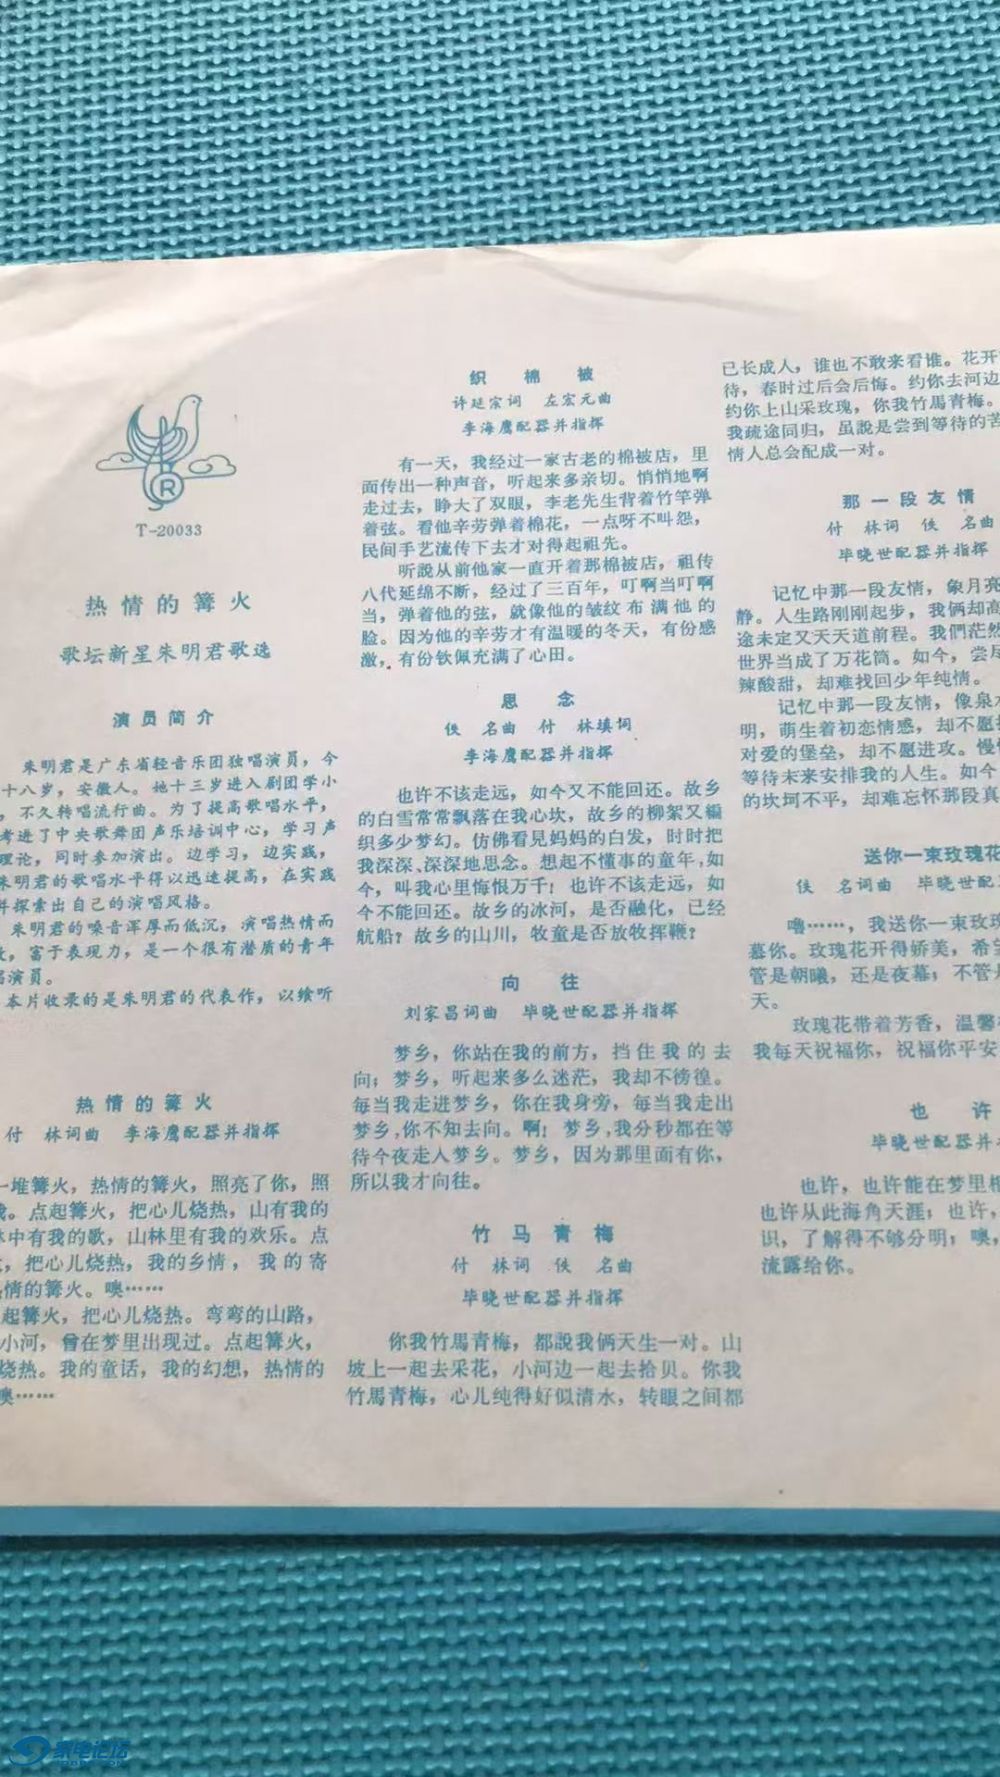 R
T-20033
热情的篝火
歌坛新星朱明君歌选
演员简介
朱明君是广东省轻音乐团独唱演员，今
十八岁，安徽人。她十三岁进入剧团学小
，不久转唱流行曲。为了提高歌唱水平，
考进了中央歌舞团声乐培训中心，学习声
理论，同时参加演出。边学习，边实践，
朱明君的歌唱水平得以迅速提高，在实践
并探索出自己的演唱风格。
朱明君的嗓音浑厚而低沉，演唱热情而
，富于表现力，是一个很有潜质的青年
唱演员。
本片收录的是朱明君的代表作，以飨听
热情的篝火
付 林词曲 李海鹰配器并指挥
一堆篝火，热情的篝火，照亮了你，照
我。点起篝火，把心儿烧热，山有我的
林中有我的歌，山林里有我的欢乐。点
，把心儿烧热，我的乡情，我的寄
热情的篝火。噢……
起篝火，把心儿烧热。弯弯的山路，
小河，曾在梦里出现过。点起篝火，
烧热。我的童话，我的幻想，热情的
噢……
织棉被
许延宗词 左宏元曲
李海鹰配器并指挥
有一天，我经过一家古老的棉被店，里
面传出一种声音，听起来多亲切。悄悄地啊
走过去，睁大了双眼，李老先生背着竹竿弹
着弦。看他辛劳弹着棉花，一点呀不叫怨，
民间手艺流传下去才对得起祖先。
听說从前他家一直开着那棉被店，祖传
八代延绵不断，经过了三百年，叮啊当叮啊
当，弹着他的弦，就像他的皱纹布满他的
脸。因为他的辛劳才有温暖的冬天，有份感
激，有份钦佩充满了心田。
思念
佚 名曲 付 林填词
李海鹰配器并指挥
也许不该走远，如今又不能回还。故乡
的白雪常常飘落在我心坎，故乡的柳絮又編
织多少梦幻。仿佛看見妈妈的白发，时时把
我深深、深深地思念。想起不懂事的童年，如
今，叫我心里悔恨万千！也许不该走远，如
今不能回还。故乡的冰河，是否融化，已经
航船？故乡的山川，牧童是否放牧挥鞭？
向往
刘家昌词曲 毕晓世配器并指挥
梦乡，你站在我的前方，挡住我的去
向；梦乡，听起来多么迷茫，我却不徬徨。
每当我走进梦乡，你在我身旁，每当我走出
梦乡，你不知去向。啊！梦乡，我分秒都在等
待今夜走人梦乡。梦乡，因为那里面有你，
所以我才向往。
竹马青梅
付 林词 佚 名曲
毕晓世配器并指挥
你我竹馬青梅，都說我俩天生一对。山
坡上一起去采花，小河边一起去拾贝。你我
竹馬青梅，心儿纯得好似清水，转眼之间都
已长成人，谁也不敢来看谁。花开
待，春时过后会后悔。约你去河边
约你上山采玫瑰，你我竹馬青梅。
我疏途同归，虽說是尝到等待的苦
情人总会配成一对。
那一段友情
付 林词 佚 名曲
毕晓世配器并指挥
记忆中那一段友情，象月亮
静。人生路刚刚起步，我俩却高
途未定又天天道前程。我們茫然
世界当成了万花筒。如今，尝尽
辣酸甜，却难找回少年纯情。
记忆中那一段友情，像泉水
明，萌生着初恋情感，却不愿
对爱的堡垒，却不愿进攻。慢慢
等待未来安排我的人生。如今
的坎坷不平，却难忘怀那段真
送你一束玫瑰花
佚 名词曲 毕晓世配器
噜……，我送你一束玫瑰
慕你。玫瑰花开得娇美，希望
管是朝曦，还是夜幕；不管是
天。
玫瑰花带着芳香，温馨
我每天祝福你，祝福你平安
也许
毕晓世配器并
也许，也许能在梦里相
也许从此海角天涯；也许，
识，了解得不够分明；噢，
流露给你。
家电论坛